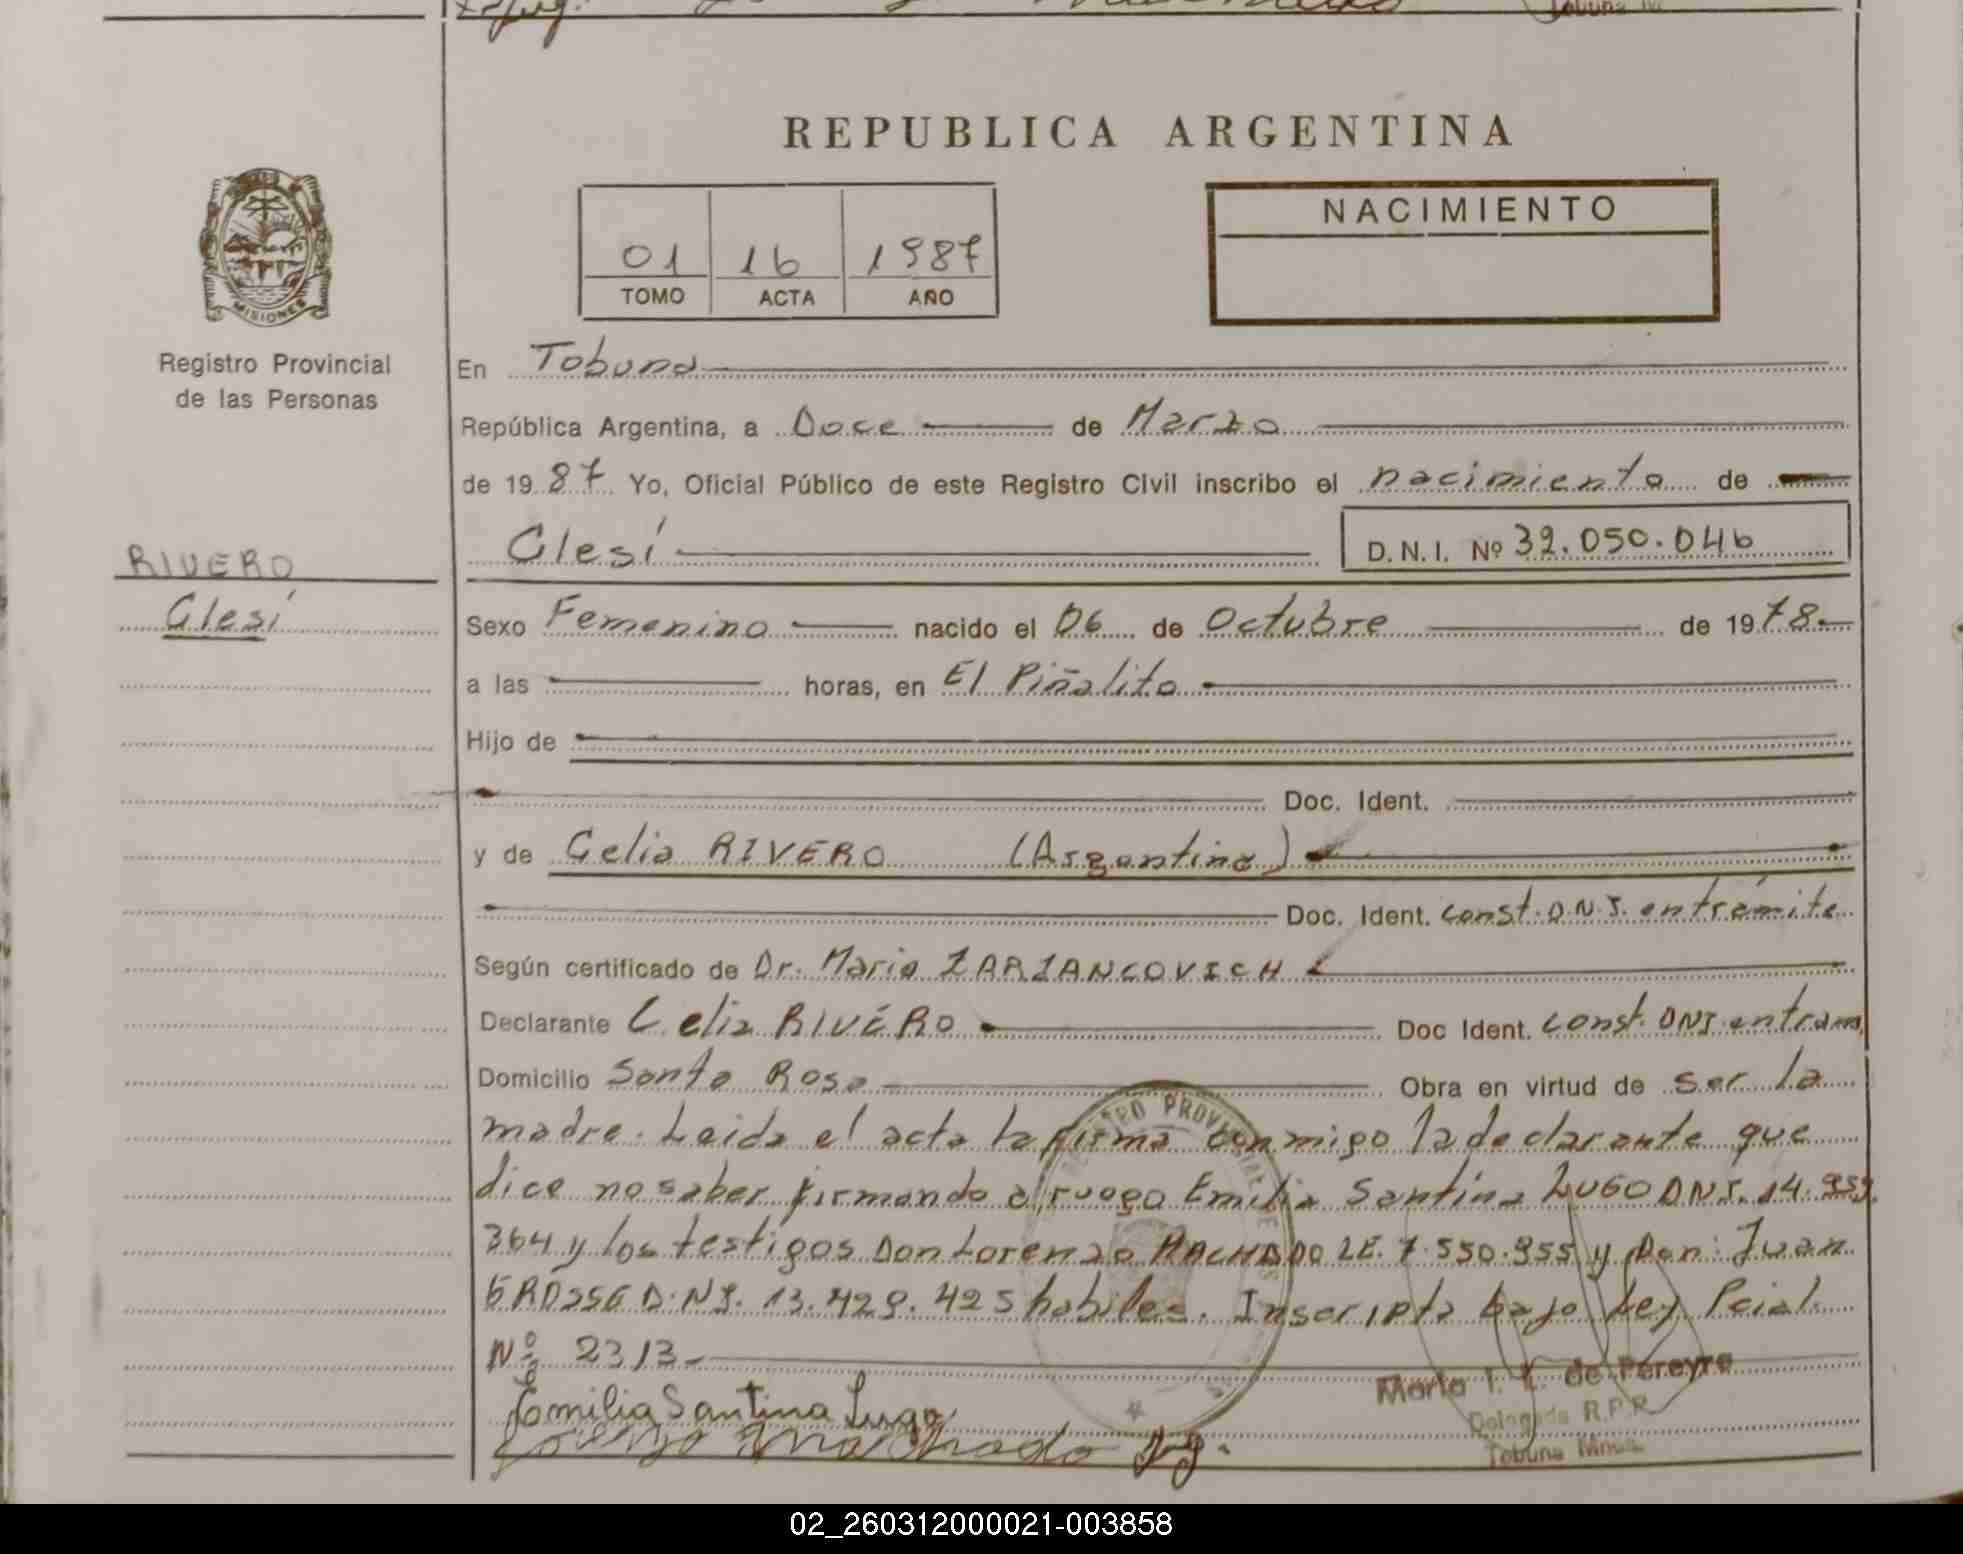 REPUBLICA ARGENTINA
NACIMIENTO
01 16 1987
TOMO ACTA AÑO
MISIONES
Registro Provincial
de las Personas
En Tobuna
República Argentina, a Doce de Marzo
de 1987. Yo, Oficial Público de este Registro Civil inscribo el nacimiento de
Clesí D.N.I. Nº 32.050.046
RIVERO
Clesí
Sexo Femenino nacido el 06 de Octubre de 1978.
a las horas, en El Piñalito
Hijo de
Doc. Ident.
y de Celia RIVERO (Argentina)
Doc. Ident. Const. D.N.I. entrámite
Según certificado de Dr. Mario ZARZANCOVICH
Declarante Celia RIVERO Doc Ident. Const. DNI entram
Domicilio Santa Rosa Obra en virtud de ser la
madre. Leida el acta la firma conmigo la declarante que
dice no saber firmando a ruego Emilia Santina LUGO DNI. 14.959.
364 y los testigos Don Lorenzo MACHADO LE. 7.550.955 y Don: Juan
D.NI. 13.429.425 habiles. Inscripta bajo Ley Pcial.
Nº 2313-
Emilia Santina Lugo
Lorenzo Machado
REGISTRO PROVINCIAL DE LAS
Maria I. L. de Pereyra
Delegada R.P.P.
Tobuna Mnes.
02_260312000021-003858